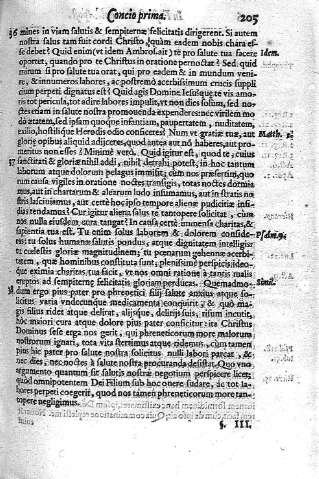 Concio prima. 205
36 mines in viam salutis & sempiternæ felicitatis dirigerent. Si autem
nostra salus tam fuit cordi Christo, quàm eadem nobis chara es-
se debet? Quid enim (vt idem Ambrosius ait) te pro salute tua facere Idem.
oportet, quando pro te Christus in oratione pernoctat? Sed quid
mirum si pro salute tua orat, qui pro eadem & in mundum veni-
re, & innumeros labores, ac postremò acerbissimum crucis suppli
cium perpeti dignatus est? Quid agis Domine Iesu? quæ te vis amo-
ris tot pericula, tot adire labores impulit, vt non dies solùm, sed no-
ctes etiam in salute nostra promouenda expenderes? nec virilem mo
dò ætatem, sed ipsam quoque infantiam, paupertatem, nuditatem,
exilio, hostilique Herodis odio consiceres? Num vt gratiæ tuæ, aut Matth. 2.
gloriæ opibus aliquid adijceres, quod antea aut nō haberes, aut pro-
meritus non esses? Minimè verò. Quid igitur est, quod te, cuius
37 sanctitati & gloriæ nihil addi, nihil detrahi potest, in hoc tantum
laborum atque dolorum pelagus immisit; cùm nos præsertim, quo
rum causa vigiles in oratione noctes transigis, totas noctes dormia
mus, aut in chartarum & alearum ludo insumamus, aut in stratis no
stris lasciuiamus, aut certè hoc ipso tempore alienæ pudicitiæ insi-
dias tendamus? Cur igitur aliena salus te tantopere solicitat, cùm
nos nulla eiusdem cura tangat? In causa certè immensa charitas, &
sapientia tua est. Tu enim solus laborem & dolorem conside- Psalm. 9.
ras: tu solus humanæ salutis pondus, atque dignitatem intelligis:
tu cœlestis gloriæ magnitudinem, tu pœnarum gehennæ acerbi-
tatem, quæ hominibus constituta sunt, plenissimè perspicis: ideo-
que eximia charitas tua facit, vt nos omni ratione à tantis malis
ereptos ad sempiternæ felicitatis gloriam perducas. Quemadmo- Simil.
38 dum ergo pius pater pro phrenetici filij salute anxius atque so-
licitus varia vndecunque medicamenta conquirit, & quò ma-
gis filius ridet atque delirat, alijsque, delirijs suis, risum incutit,
hoc maiori cura atque dolore pius pater conficitur: ita Christus
Dominus sese erga nos gerit, qui phreneticorum more malorum
nostrorum ignari, tota vita sternimus atque ridemus, cùm tamen
pius hic pater pro salute nostra solicitus nulli labori parcat, &
nec dies, nec noctes à salute nostra procuranda desistat. Quo vno
argumento quantum sit salutis nostræ negotium perspicere licet;
quod omnipotentem Dei Filium sub hoc onere sudare, ac tot la-
bores perpeti coëgerit, quod nos tamen phreneticorum more tan-
topere negligimus.
§. III.